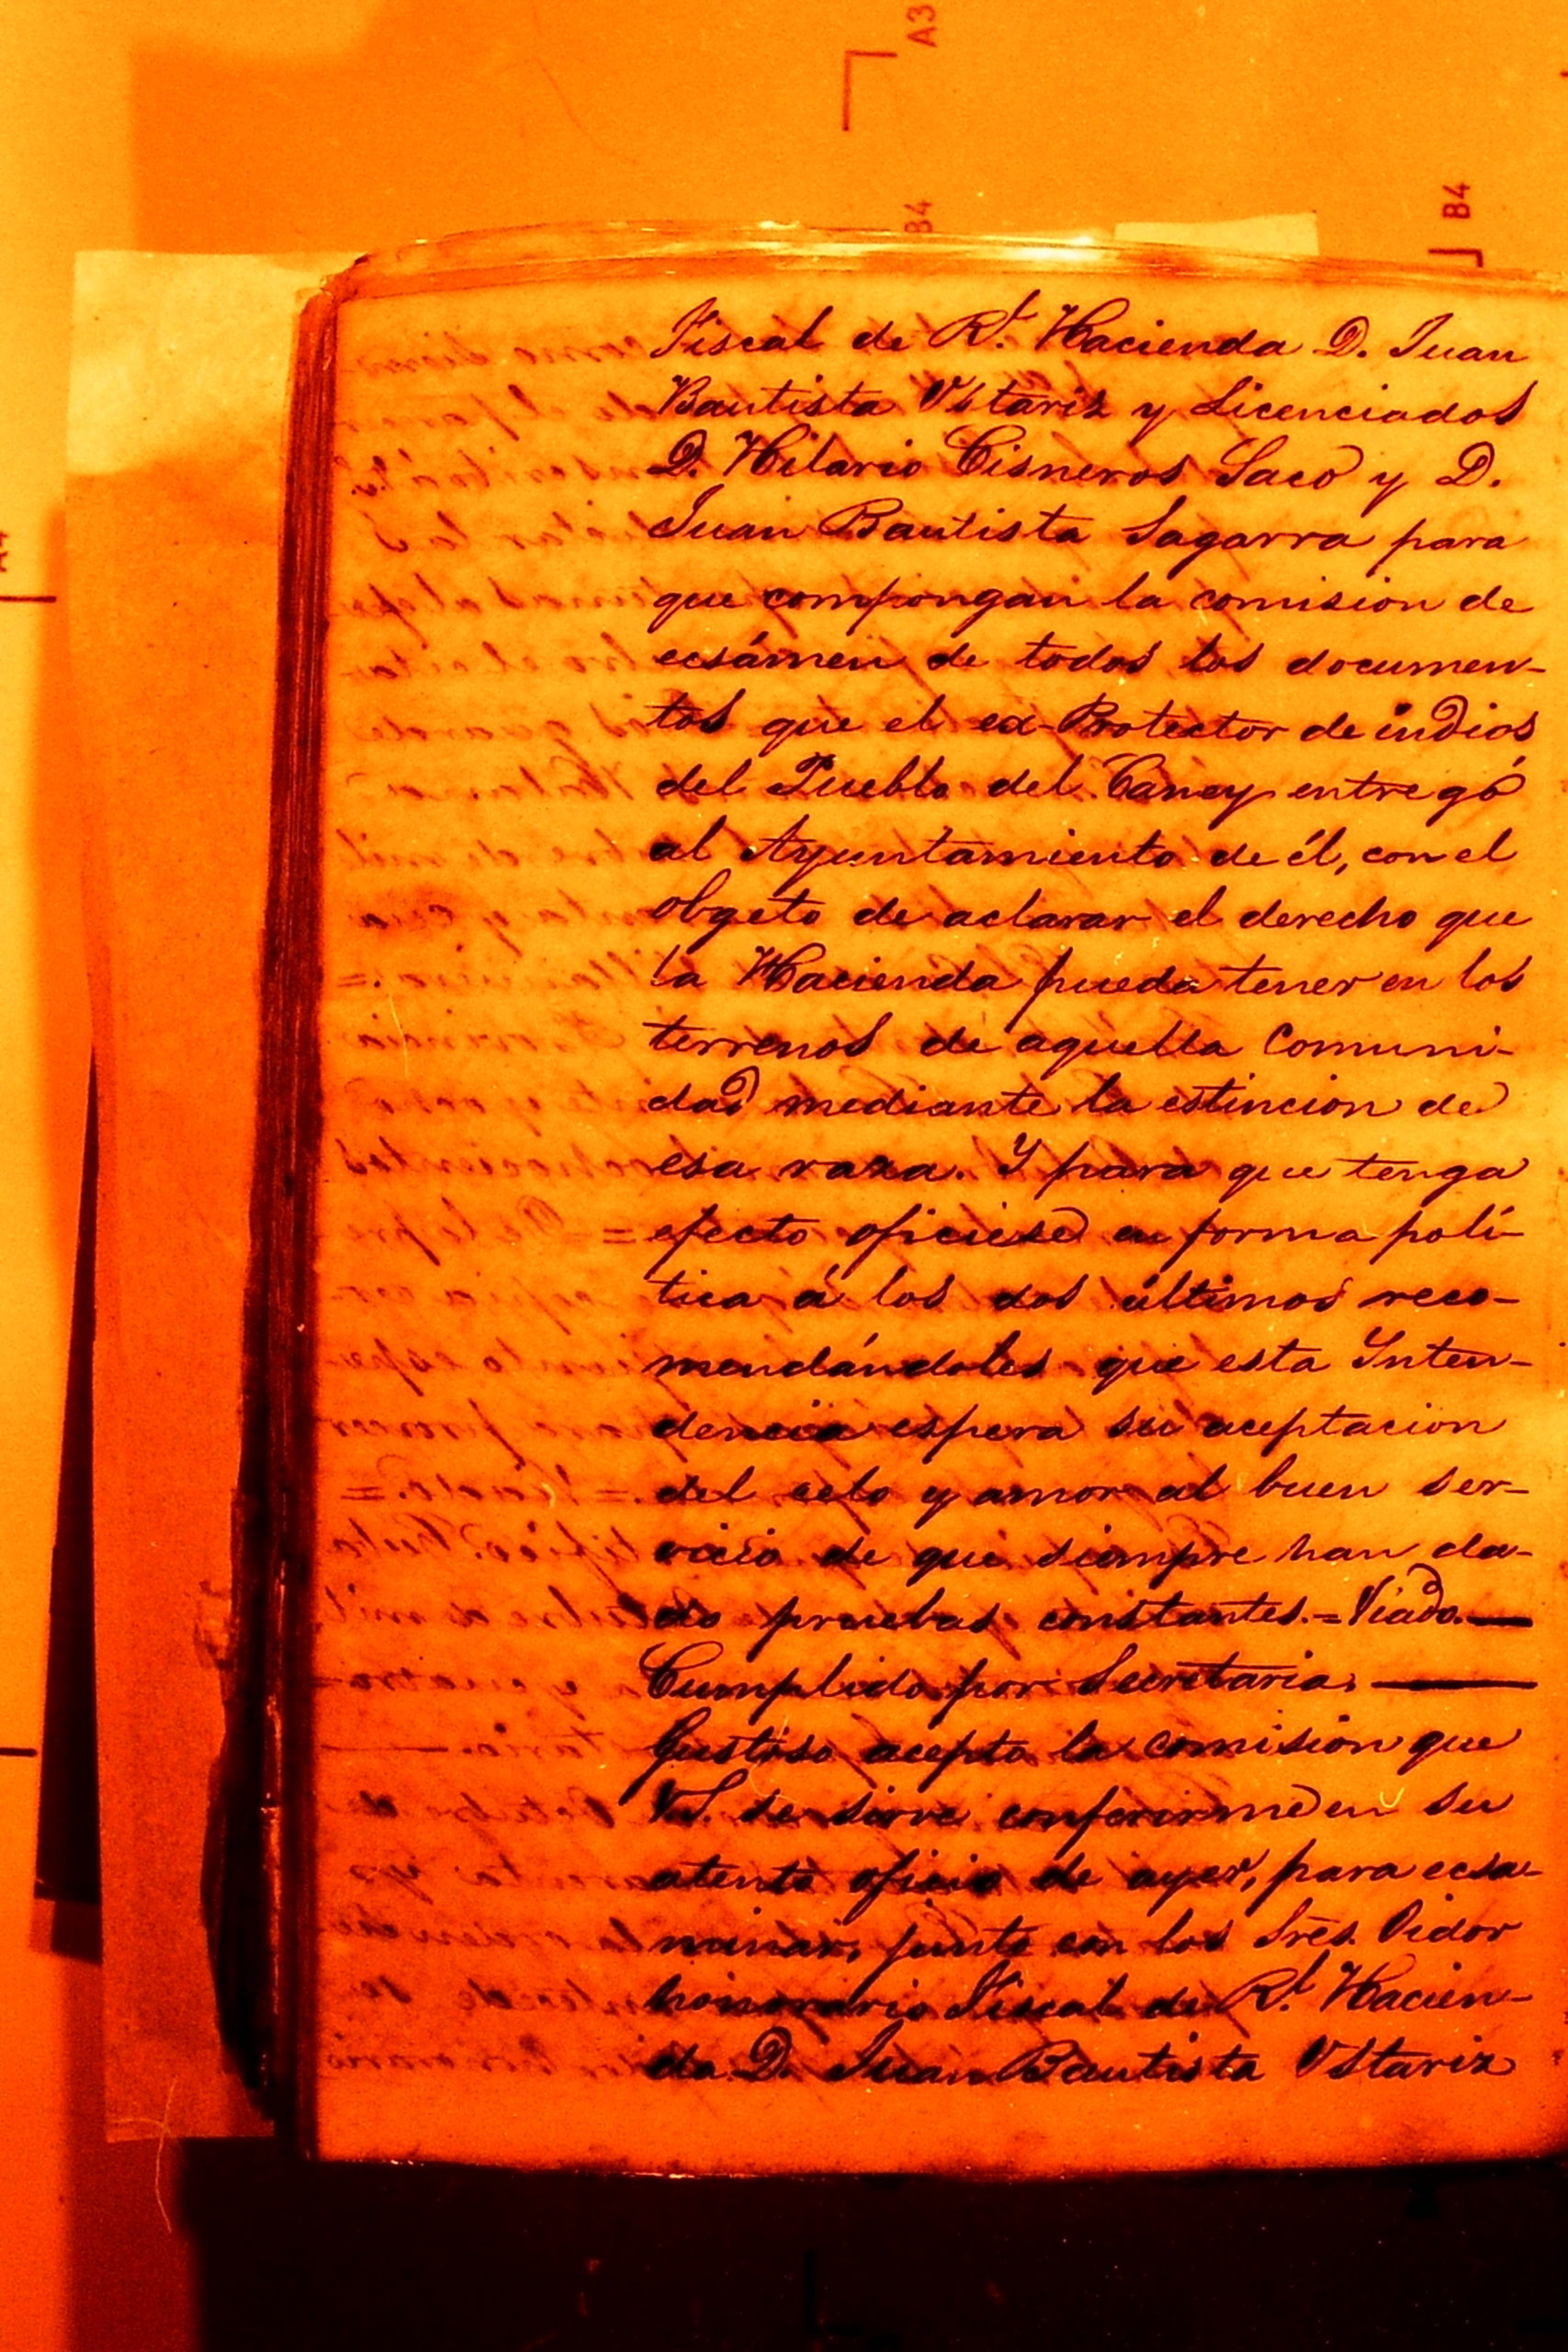 A3
B4
B4
Fiscal de Rl. Hacienda D. Juan
Bautista Ustariz y Licenciados
D. Hilario Cisneros Saco y D.
Juan Bautista Sagarra para
que compongan la comision de
ecsámen de todos los documen-
tos que el ex-Protector de indios
del Pueblo del Caney entregó
al Ayuntamiento de él, con el
obgeto de aclarar el derecho que
la Hacienda pueda tener en los
terrenos de aquella Comuni-
dad mediante la estincion de
esa raza. Y para que tenga
efecto oficiese en forma polí-
tica á los dos últimos reco-
mendándoles que esta Inten-
dencia espera su aceptacion
del celo y amor al buen ser-
vicio de que siempre han da-
do pruebas constantes.=Viado.—
Cumplido por Secretaria. —
Gustoso acepto la comision que
VS. se sirve conferirme en su
atento oficio de ayer, para ecsa-
minar, junto con los Sres. Oidor
honorario Fiscal de Rl. Hacien-
da D. Juan Bautista Ustariz